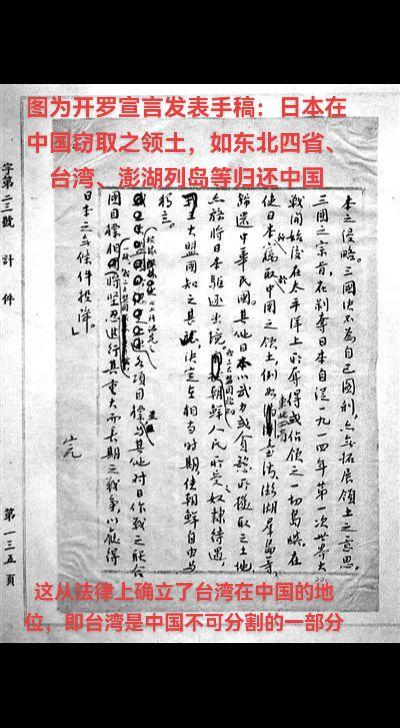 图为开罗宣言发表手稿：日本在
中国窃取之领土，如东北四省、
台湾、澎湖列岛等归还中国
本之侵略。三國決不為自己圖利，亦無拓展領土之意思。
三國之宗旨，在剝奪日本自從一九一四年第一次世界大
戰開始後在太平洋上所奪得或佔領之一切島嶼，在
使日本竊取中國之領土，例如
東北四省
臺灣、澎湖群島等
歸還中華民國。其他日本以武力或貪慾所攫取之土地
亦務將日本驅逐出境
朝鮮人民所受奴隸待遇，
三大盟國知之甚
決定在相當時期，使朝鮮自由與
獨立。
各項目標
與其他對日作戰之聯合
國目標相
將堅忍進行其重大而長期之戰爭，以獲得
日本之無條件投降。」
字第二三號 計 件
第一三五頁
这从法律上确立了台湾在中国的地
位，即台湾是中国不可分割的一部分